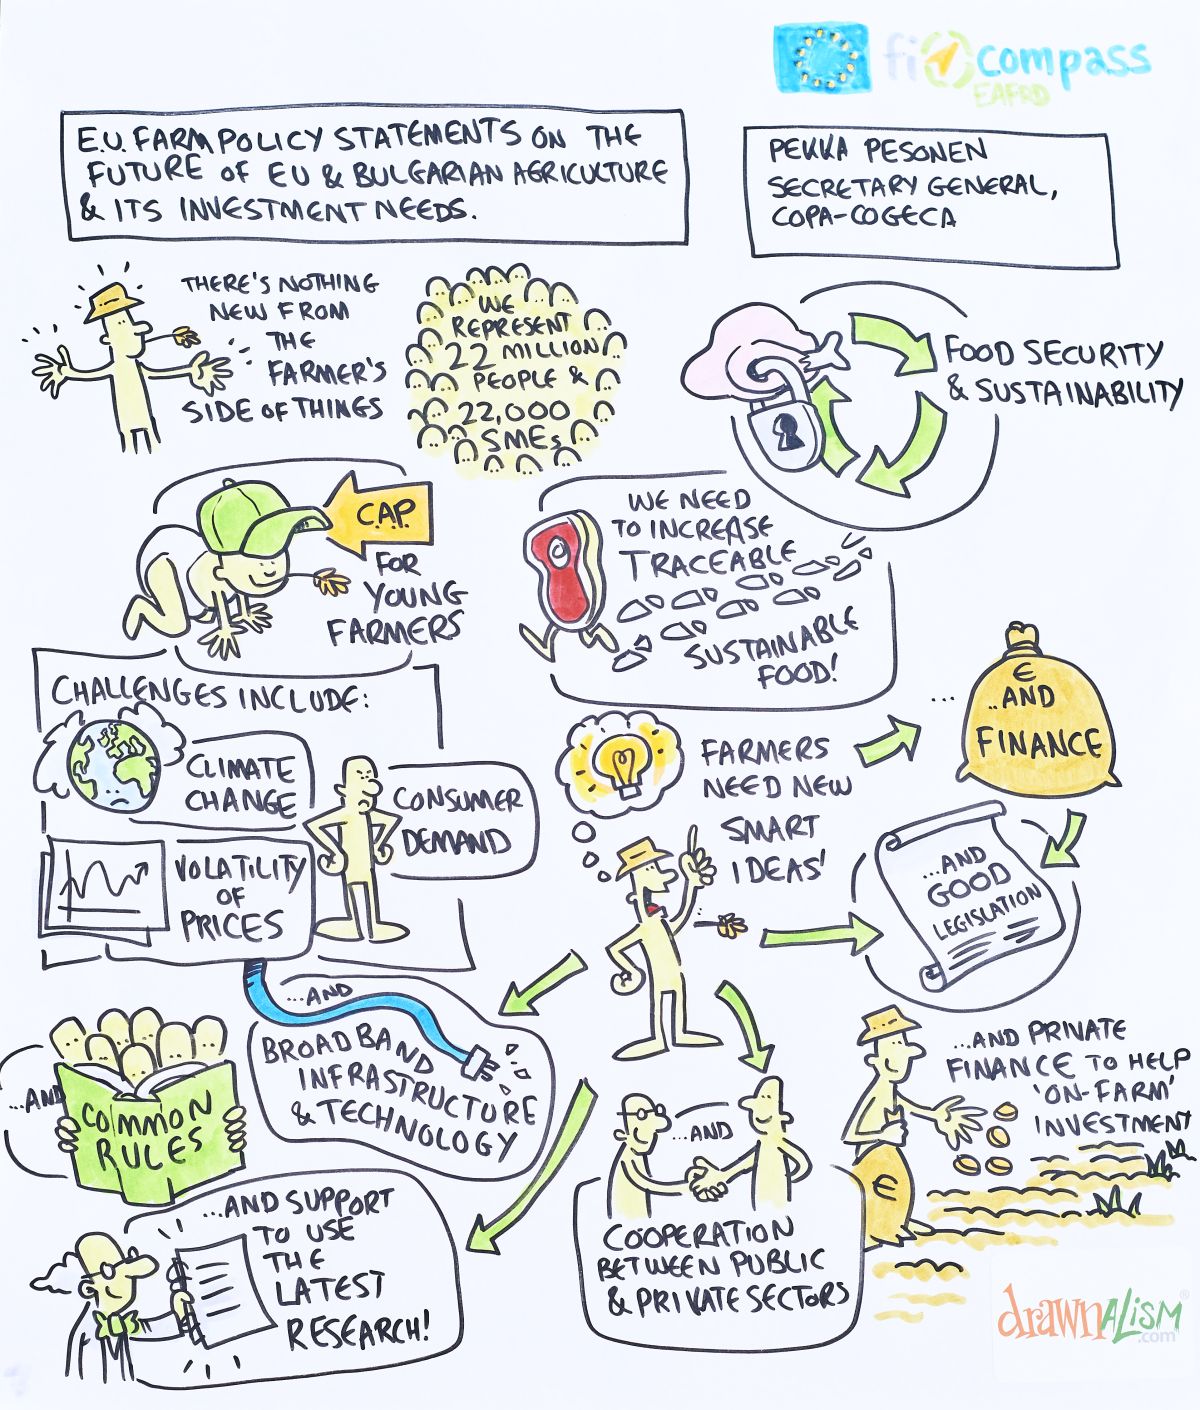 fi compass
EAFRD
E.U. FARM POLICY STATEMENTS ON THE
FUTURE OF EU & BULGARIAN AGRICULTURE
& ITS INVESTMENT NEEDS.
PEKKA PESONEN
SECRETARY GENERAL,
COPA-COGECA
THERE'S NOTHING
NEW FROM
THE
FARMER'S
SIDE OF THINGS
WE
REPRESENT
22 MILLION
PEOPLE &
22,000
SMEs
FOOD SECURITY
& SUSTAINABILITY
C.A.P.
FOR
YOUNG
FARMERS
WE NEED
TO INCREASE
TRACEABLE
SUSTAINABLE
FOOD!
CHALLENGES INCLUDE:
CLIMATE
CHANGE
CONSUMER
DEMAND
VOLATILITY
OF
PRICES
FARMERS
NEED NEW
SMART
IDEAS'
...
€
..AND
FINANCE
...AND
GOOD
LEGISLATION
...AND
BROADBAND
INFRASTRUCTURE
& TECHNOLOGY
...AND
COMMON
RULES
...AND SUPPORT
TO USE
THE
LATEST
RESEARCH!
...AND
COOPERATION
BETWEEN PUBLIC
& PRIVATE SECTORS
...AND PRIVATE
FINANCE TO HELP
'ON-FARM'
INVESTMENT
€
drawnalism®
.com